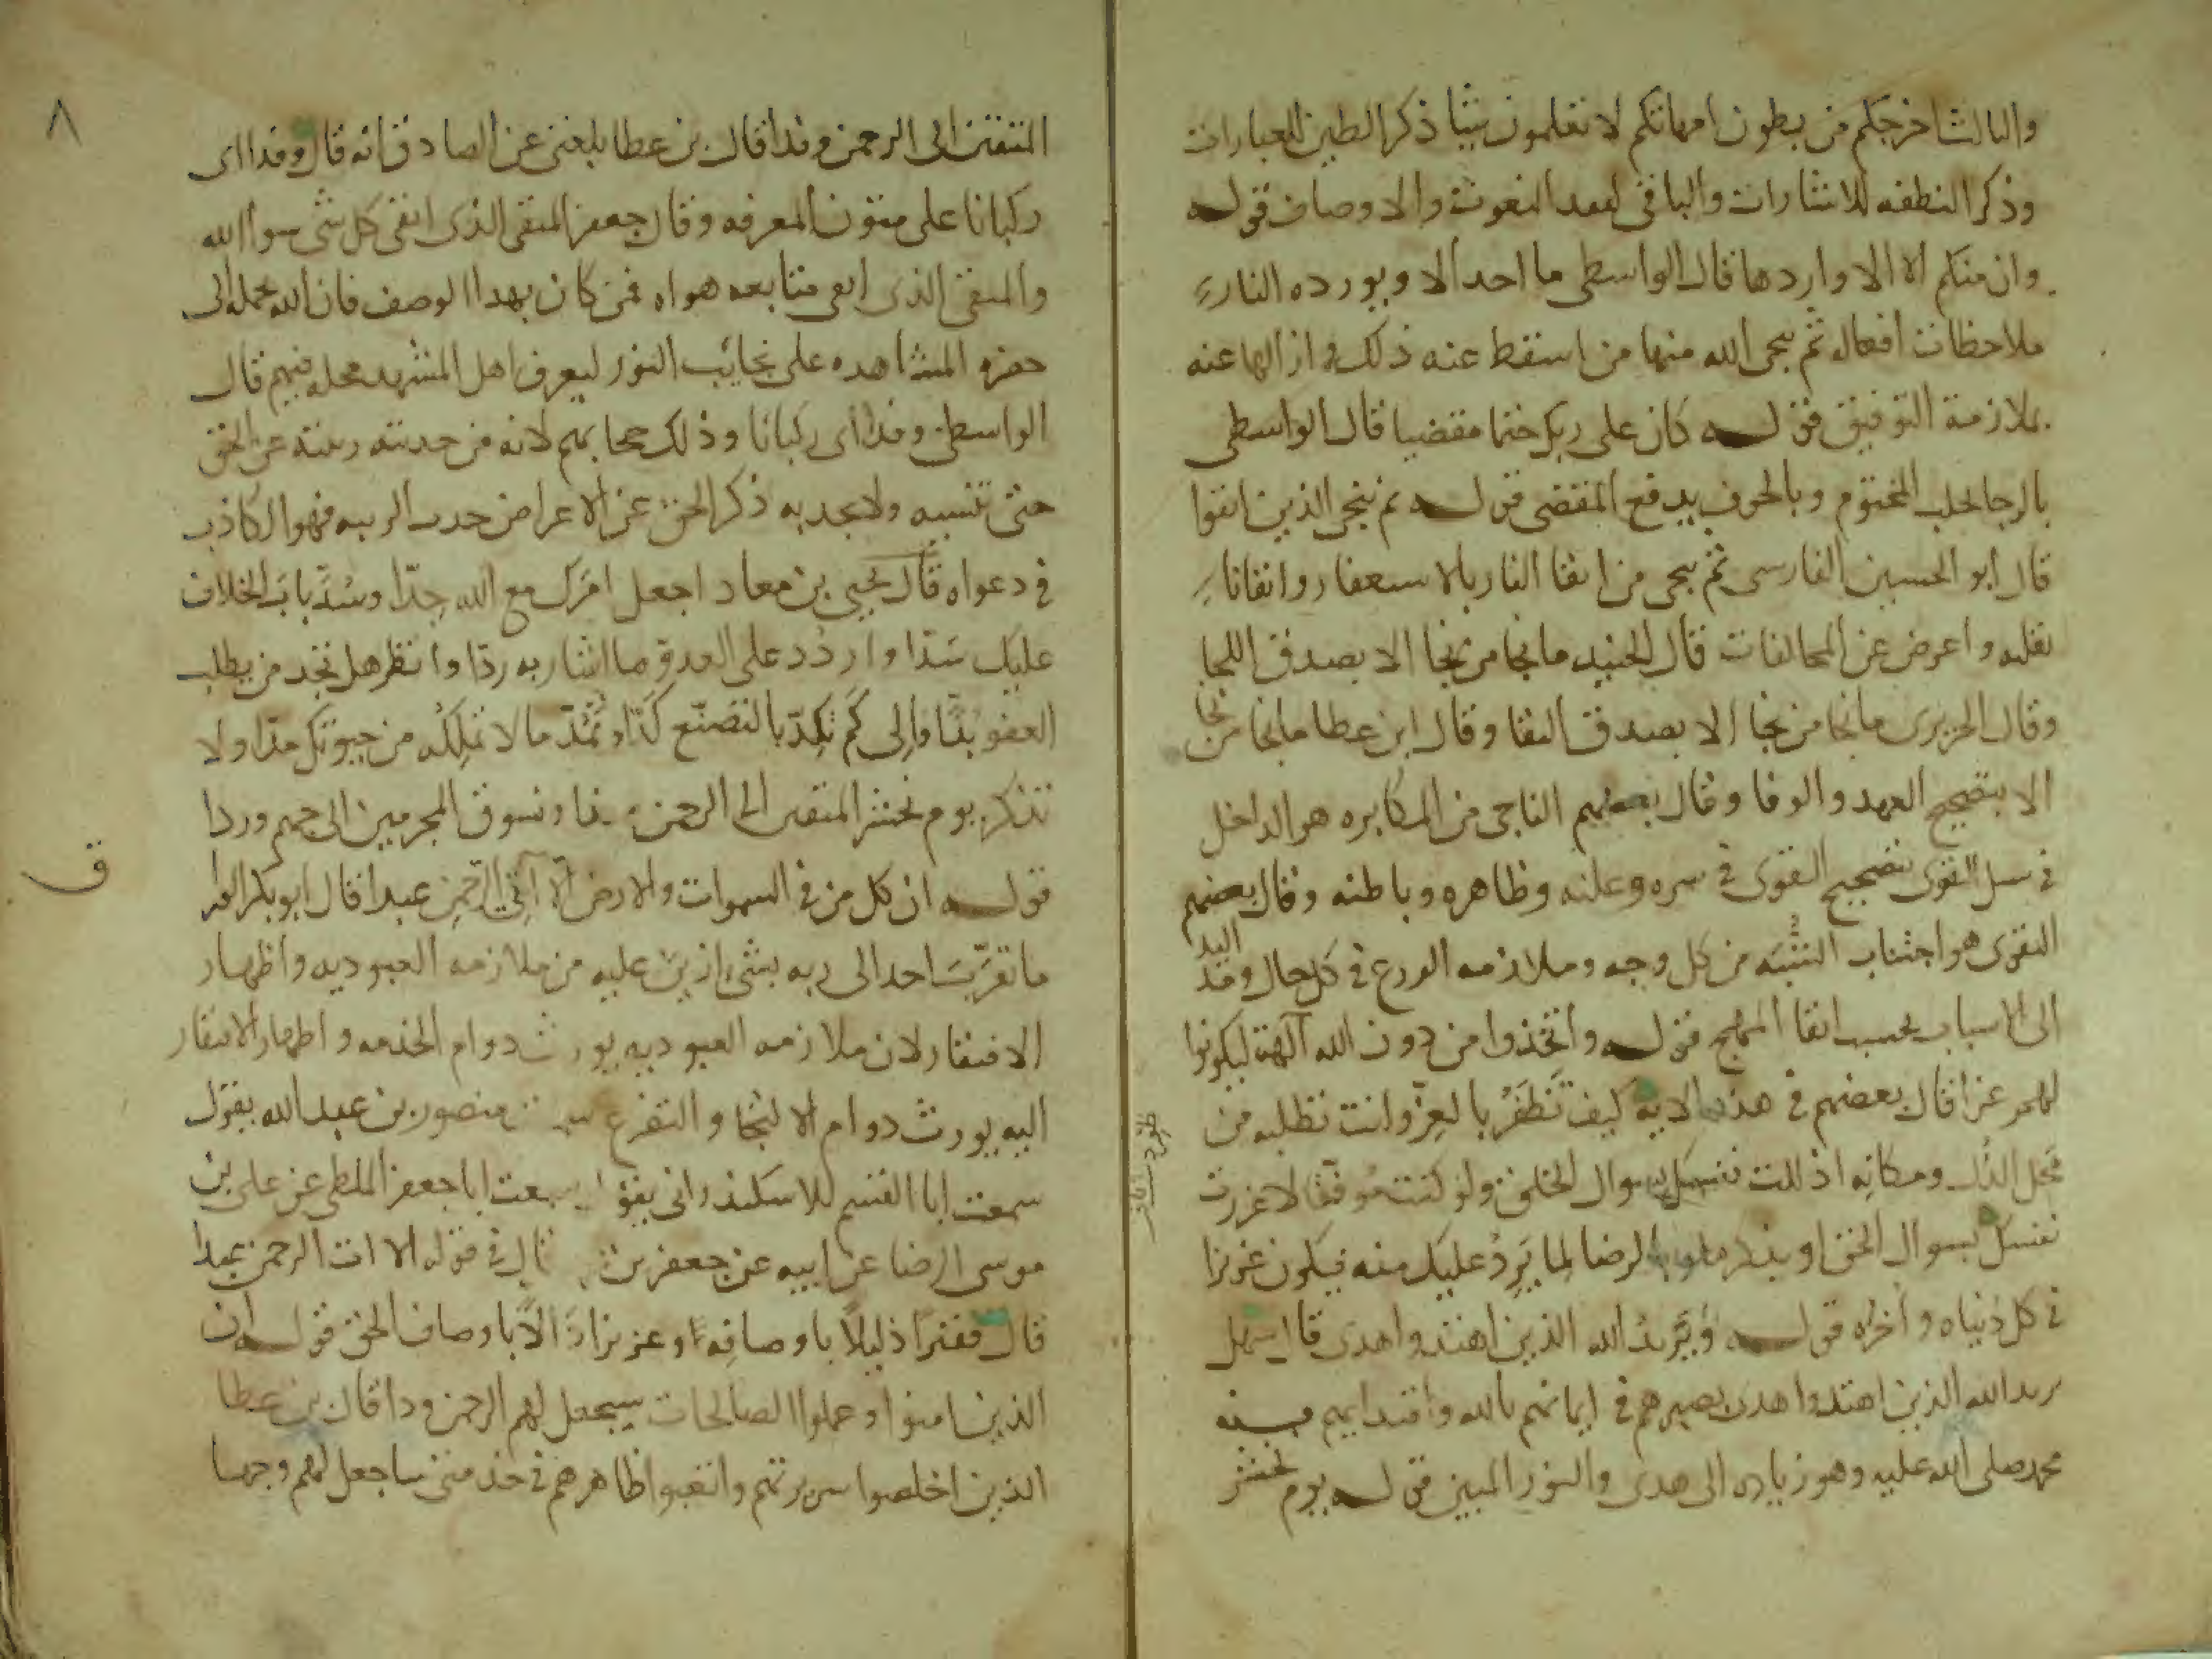 والثالث اخرجكم من بطون امهاتكم لا تعلمون شيا ذكر الطين للعبارات
وذكر النطفه للاشارات والباقى لفقد النعوت والاوصاف قوله
وان منكم الا واردها قال الواسطى ما احد الا ويورده النار
ملاحظات افعاله ثم ينجى الله منها من اسقط عنه ذلك وازالها عنه
بملازمة التوفيق قوله كان على ربك حتما مقضيا قال الواسطى
بالرجا المحتوم وبالخوف يدفع المقضى قوله ثم ننجى الذين اتقوا
قال ابو الحسين الفارسى ثم ينجى من اتقا النار بالاستغفار
بقلبه واعرض عن المخالفات قال الجنيد ما نجا من نجا الا بصدق اللجا
وقال الجريرى ما نجا من نجا الا بصدق التقا وقال ابن عطا ما نجا من نجا
الا بتصحيح العهد والوفا وقال بعضهم الناجى من المكابره هو الداخل
فى سبل التقوى بتصحيح التقوى فى سره وعلنه وظاهره وباطنه وقال بعضهم
التقوى هو اجتناب التشبه من كل وجه وملازمه الورع فى كل حال ومد اليد
الى الاسباب بحسب اتقا المهج قوله واتخذوا من دون الله آلهة ليكونوا
لهم عزا قال بعضهم فى هذه الايه كيف تظفر بالعز وانت تطلبه من
محل الذل ومكانه اذللت نفسك بسوال الخلق ولو كنت موفقا لاعززت
نفسك بسوال الحق او الرضا لما يرد عليك منه فيكون عزيزا
فى كل دنياه واخراه قوله ويزيد الله الذين اهتدوا هدى قال سهل
يزيد الله الذين اهتدوا هدى بصيرهم فى ايمانهم بالله واقتدايهم
محمد صلى الله عليه وهو زياده الى هدى والنور المبين قوله يوم نحشر
٨
المتقين الى الرحمن وفدا قال بن عطا بلغنى عن الصادق انه قال وفدا اى
ركبانا على متون المعرفه وقال جعفر المتقى الذى اتقى كل شى سوا الله
والمتقى الذى اتقى متابعه هواه فمن كان بهذا الوصف فان الله يحمله الى
حضره المشاهده على نجايب النور ليعرف اهل المشهد محله فيهم قال
الواسطى وفدا اى ركبانا وذلك لانه من عن الحق
حتى ولا ذكر الحق عن الاعراض فهو الكاذب
فى دعواه قال يحيى بن معاد اجعل امرك مع الله جدا وسد باب الخلاف
عليك سدا واردد على العدو ما اشار به ردا وانظر هل تجد من يطلب
العفو بدا فالى كم تكد بالتصنع كدا وتمد ما لا تملكه من حيوتك مدا ولا
تتذكر يوم نحشر المتقين الى الرحمن وفدا ونسوق المجرمين الى جهنم وردا
قوله ان كل من فى السموات والارض الا اتى الرحمن عبدا قال ابو بكر الوراق
ما تقرب احد الى ربه بشى ازين عليه من ملازمه العبوديه واظهار
الافتقار لان ملازمه العبوديه يورث دوام الخدمه واظهار الافتقار
اليه يورث دوام الالتجا والتضرع سمعت منصور بن عبد الله يقول
سمعت ابا القسم للاسكندرانى يقول سمعت ابا جعفر الملطى عن على بن
موسى الرضا عن ابيه عن جعفر بن قال فى قوله الا ات الرحمن عبدا
قال فقيرا ذليلا باوصافه او عزيزا دالا باوصاف الحق قوله ان
الذين امنوا وعملوا الصالحات سيجعل لهم الرحمن ودا قال بن عطا
الذين اخلصوا سريرتهم واتعبوا ظاهرهم فى خدمتى ساجعل لهم وجها